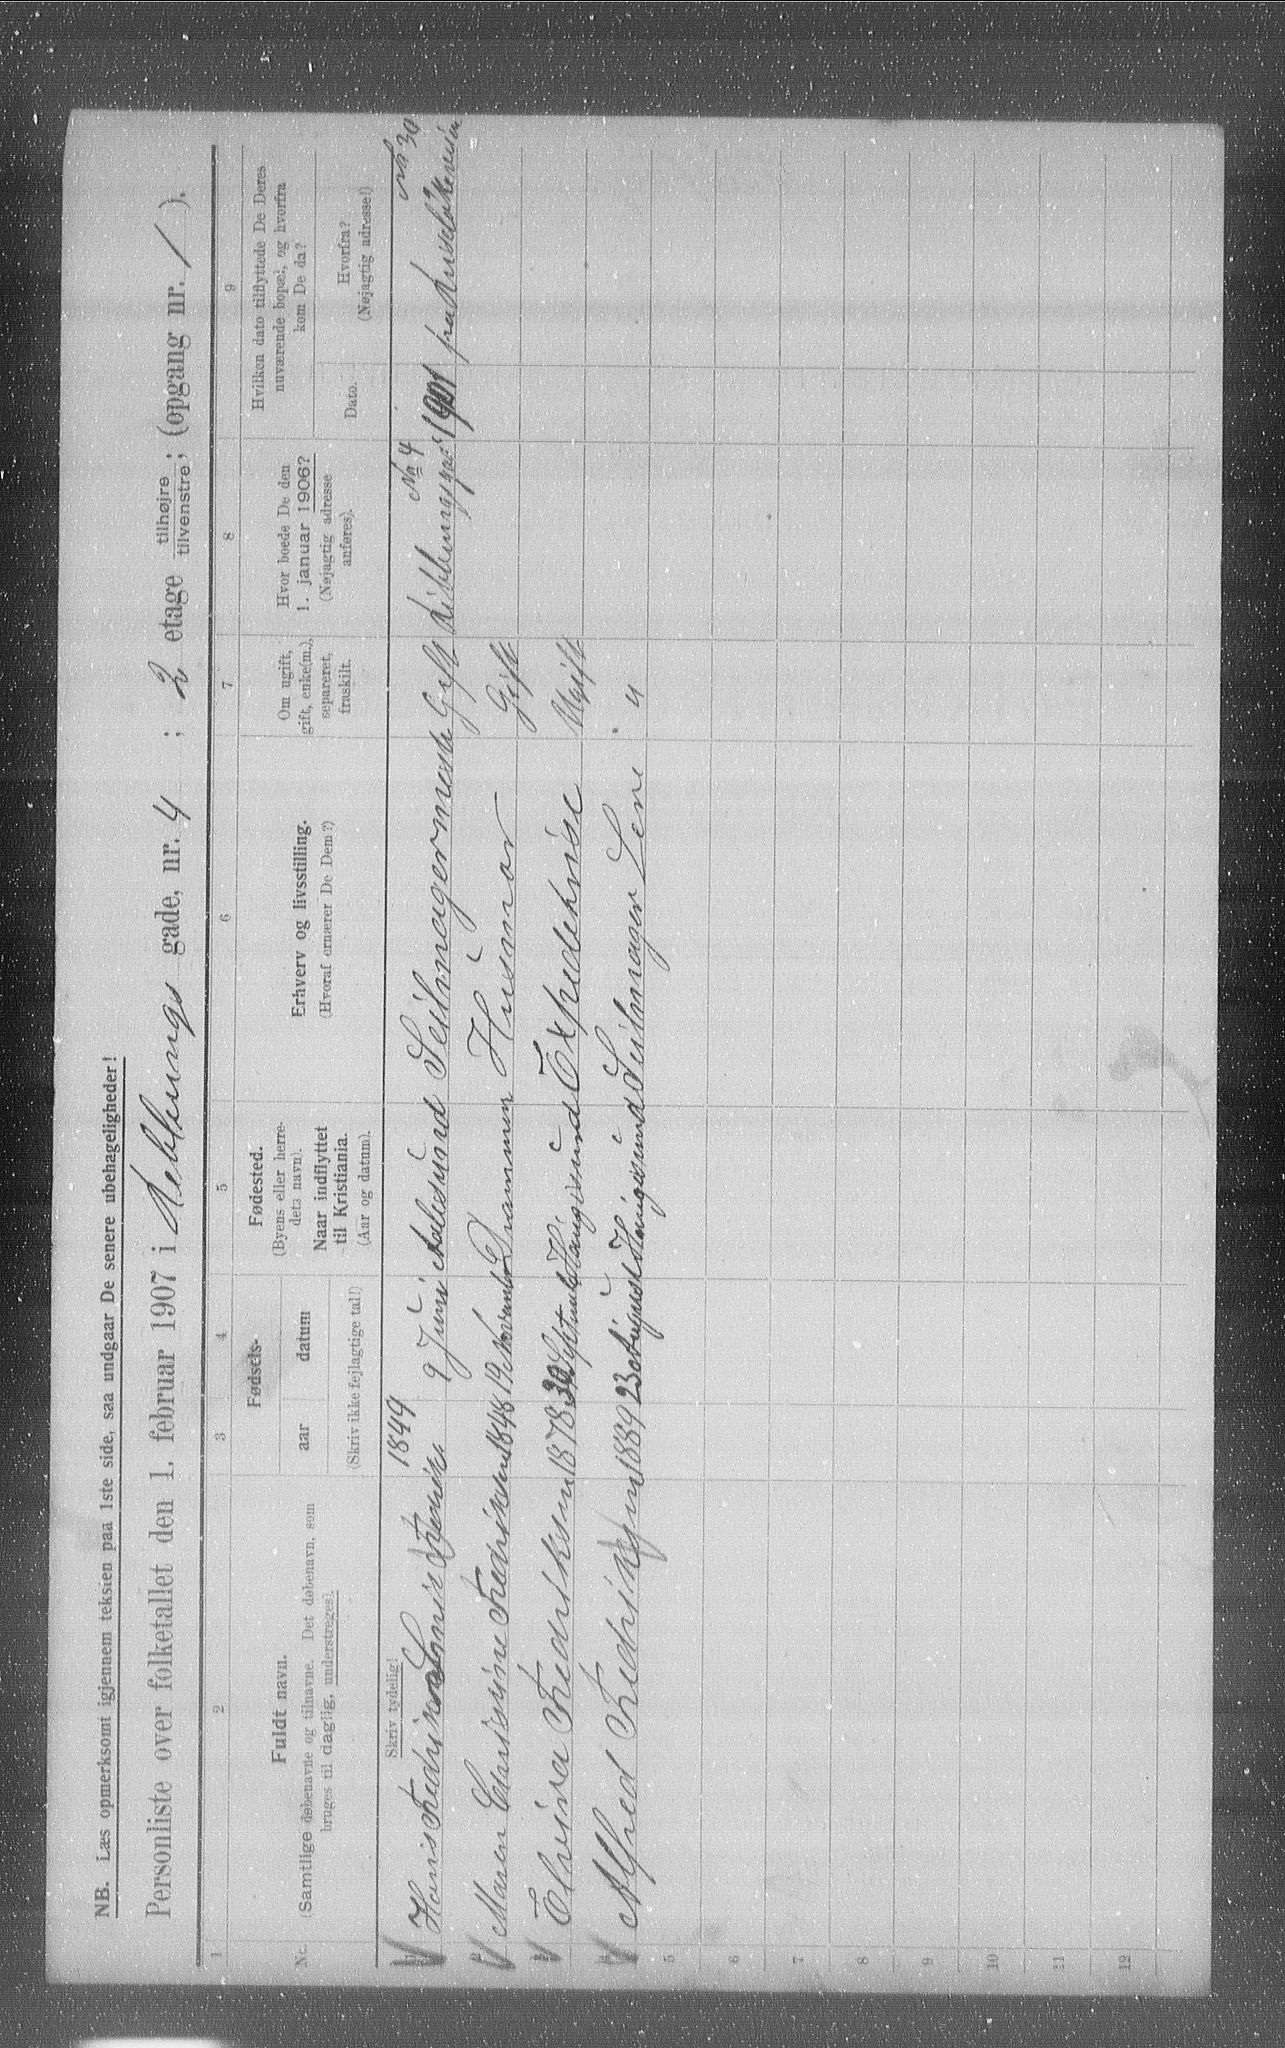 NB. Læs opmerksomt igjennem teksten paa 1ste side, saa undgaar De senere ubehageligheder!
Personliste over folketallet den 1. februar 1907 i gade, nr. 4 ; 2 etage tilhøjre tilvenstre; (opgang nr. / ).
1 2 3 4 5 6 7 8 9
Nr.
Fuldt navn.
(Samtlige døbenavne og tilnavne. Det døbenavn, som
bruges til daglig, understreges).
Skriv tydelig!
Fødsels-
aar datum
(Skriv ikke fejlagtige tal!)
Fødested.
(Byens eller herre-
dets navn).
Naar indflyttet
til Kristiania.
(Aar og datum).
Erhverv og livsstilling.
(Hvoraf ernærer De Dem?)
Om ugift,
gift, enke(m.),
separeret,
fraskilt.
Hvor boede De den
1. januar 1906?
(Nøjagtig adresse
anføres).
Hvilken dato tilflyttede De Deres
nuværende bopæl, og hvorfra
kom De da?
Dato.
Hvorfra?
(Nøjagtig adresse!)
1849 No 4 No 30
Hans 9 Juni Aalesund Seilmagermester Gift 1901 fra
2 Maren Fredriksen 1848 19 November Drammen Husmor Gift
3 Elvina Fredriksen 1878 30 Haugesund Expeditrise Ugift
4 Alfred Fredriksen 1889 23 August Haugesund Seilmager "
5
6
7
8
9
10
11
12